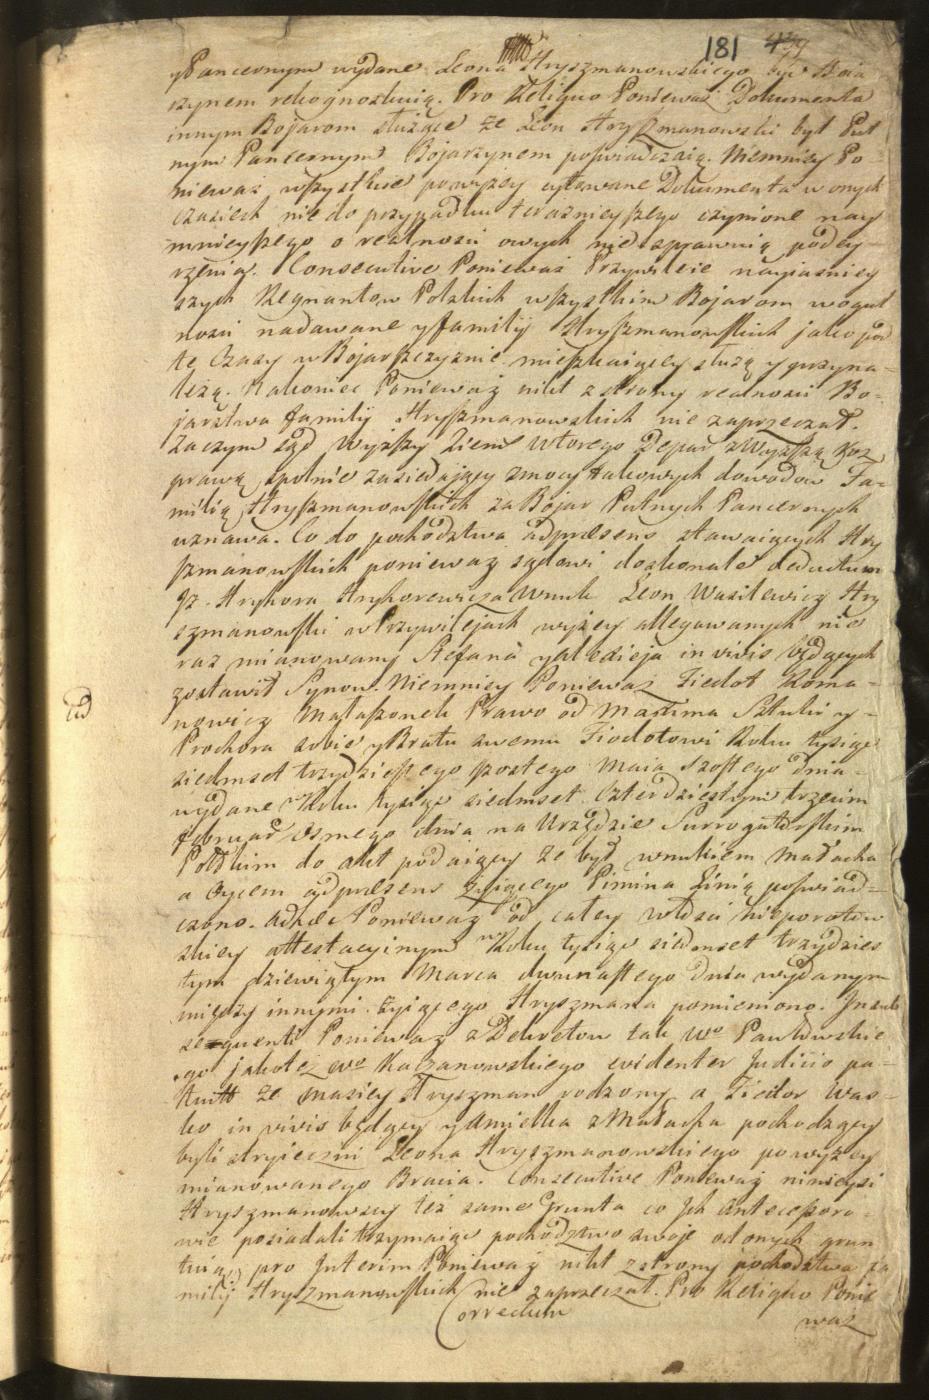 181
y Pancernym wydane Leona Hryszmanowskiego być Boia
rzynem rekognoskuią. Pro Reliquo Ponieważ Dokumenta
innym Bojarom służące że Leon Hryszmanowski był Put
nym Pancernym Bojarzynem poświadczaią. Niemniey Po
nieważ wszystkie powyżey cytowane Dokumenta w onych
czasiech nie do przypadku terazneyszego czynione nay
mnieyszego o realnosci owych nie sprawuią podey
rzenia. Consecutive Ponieważ Przywileie nayiasniey
szych Regnantow Polskich wszystkim Bojarom w ogul
nosci nadawane y familij Hryszmanowskich jako pod
te Czasy w Bojarszczyznie mieszkaiącey służą y przyna-
leżą. Nakoniec Ponieważ nikt z strony realnosci Bo-
jarstwa familij Hryszmanowskich nie zaprzeczał.
Zaczym sąd Wyższy Ziem Wtorego Depar z Wyższą Roz
prawą spolnie zasiedaiący z mocy takowych dowodow Fa-
milią Hryszmanowskich za Bojar Putnych Pancernych
uznawa. Co do pochodztwa adpræsens stawaiących Hry
szmanowskich ponieważ sądowi doskonale deductum
Iż Hryhora Hryhorewicza Wnuk Leon Wasilewicz Hry
szmanowski w Przywilejach wyżey allegowanych nie
raz mianowany Stefana y in vivis będących
zostawił Synow. Niemniey Ponieważ Fiedot Roma-
nowicz Małaszonek Prawo od Maxima y-
Prochora sobie y Bratu swemu Fiodotowi Roku tysiąc
siedmset trzydziestego szostego Maia szostego dnia-
wydane w Roku tysiąc siedmset Czterdziestym trzecim
februar osmego dnia na Urzędzie Surrogatorskim
Połskim do akt podaiący że był wnukiem Małacha
a oycem adpræsens żyiącego Pimina Linią poswiad-
czono. Adhæc Ponieważ od całey włosci Nieporotow
skiey attestacyinym w Roku tysiąc siedmset trzydzies
tym dziewiątym Marca dwunastego dnia wydanym
między innymi żyiącego Hryszmana pomieniono. In sub
sequenti Ponieważ z Dekretow tak Wo Pawłowskie
go jakoteż wo Kaczanowskiego evidenter Judicio pa-
tuitt że Maciey Hryszman rodzony, a Fiedor Was-
ko in vivis będący y Amielka z Małacha pochodzący
byli stryieczni Leona Hryszmanowskiego powyżey
mianowanego Bracia. Consecutive Ponieważ ninieysi
Hryszmanowscy też same Grunta co Ich Antecessoro-
wie posiadali trzymaiąc pochodztwo swoje od onych grun
tuią, pro Interim Ponieważ nikt z strony pochodztwa fa
milij Hryszmanowskich nie zaprzeczał. Pro Reliquo Ponie
Correctum
waż